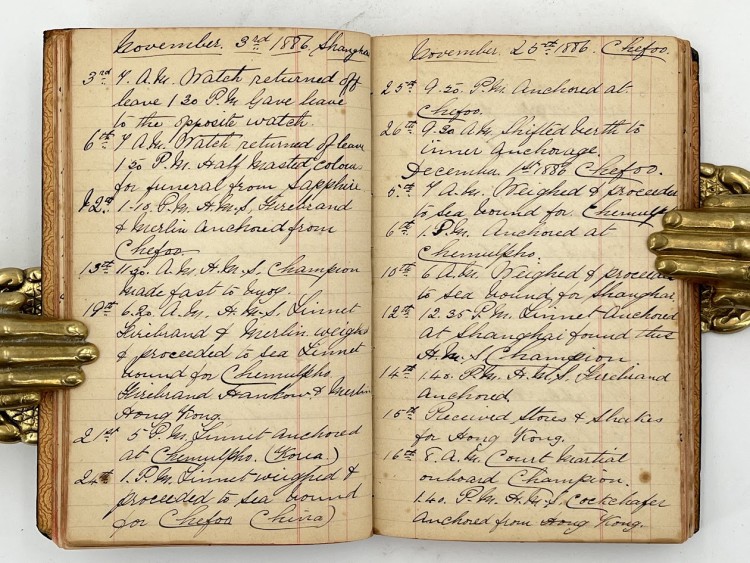 November. 3rd 1886 Shanghai
3rd 7 A.M. Watch returned off
leave 1 30 P.M Gave leave
to the opposite watch.
6th 7 A.M. Watch returned off leave
1 30 P.M. Half Masted colours
for funeral from Sapphire
12th 1.10. P.M. H.M.S, Firebrand
& Merlin Anchored from
Chefoo
13th 11 30. A.M. H.M.S. Champion
made fast to buoy.
19th 6.20. A.M. H.M.S. Linnet
Firebrand & Merlin weighed
& proceeded to sea Linnet
bound for Chemulpho,
Firebrand Hankow & Merlin
Hong Kong.
21st 5 P.M. Linnet anchored
at Chemulpho. (Korea.)
24th 1. P.M. Linnet weighed &
proceeded to sea bound
for Chefoo China)
November. 25th 1886. Chefoo.
25th 9.20. P.M Anchored at
Chefoo.
26th 9.30 A.M. Shifted berth to
inner Anchorage.
December. 1st 1886 Chefoo.
5th 7 A.M. Weighed & proceeded
to sea bound for Chemulpho
6th 1. P.M. Anchored at
Chemulpho.
10th 6 A.M. Weighed & proceeded
to sea bound for Shanghai.
12th 12.35 P.M. Linnet Anchored
at Shanghai found this
H.M.S Champion
14th 1.40. P.M. H.M.S. Firebrand
Anchored
15th Received Stores &
for Hong Kong.
16th 8. A.M. Court Martial
onboard Champion.
1.40. P.M. H.M.S. Cockchafer
Anchored from Hong Kong.